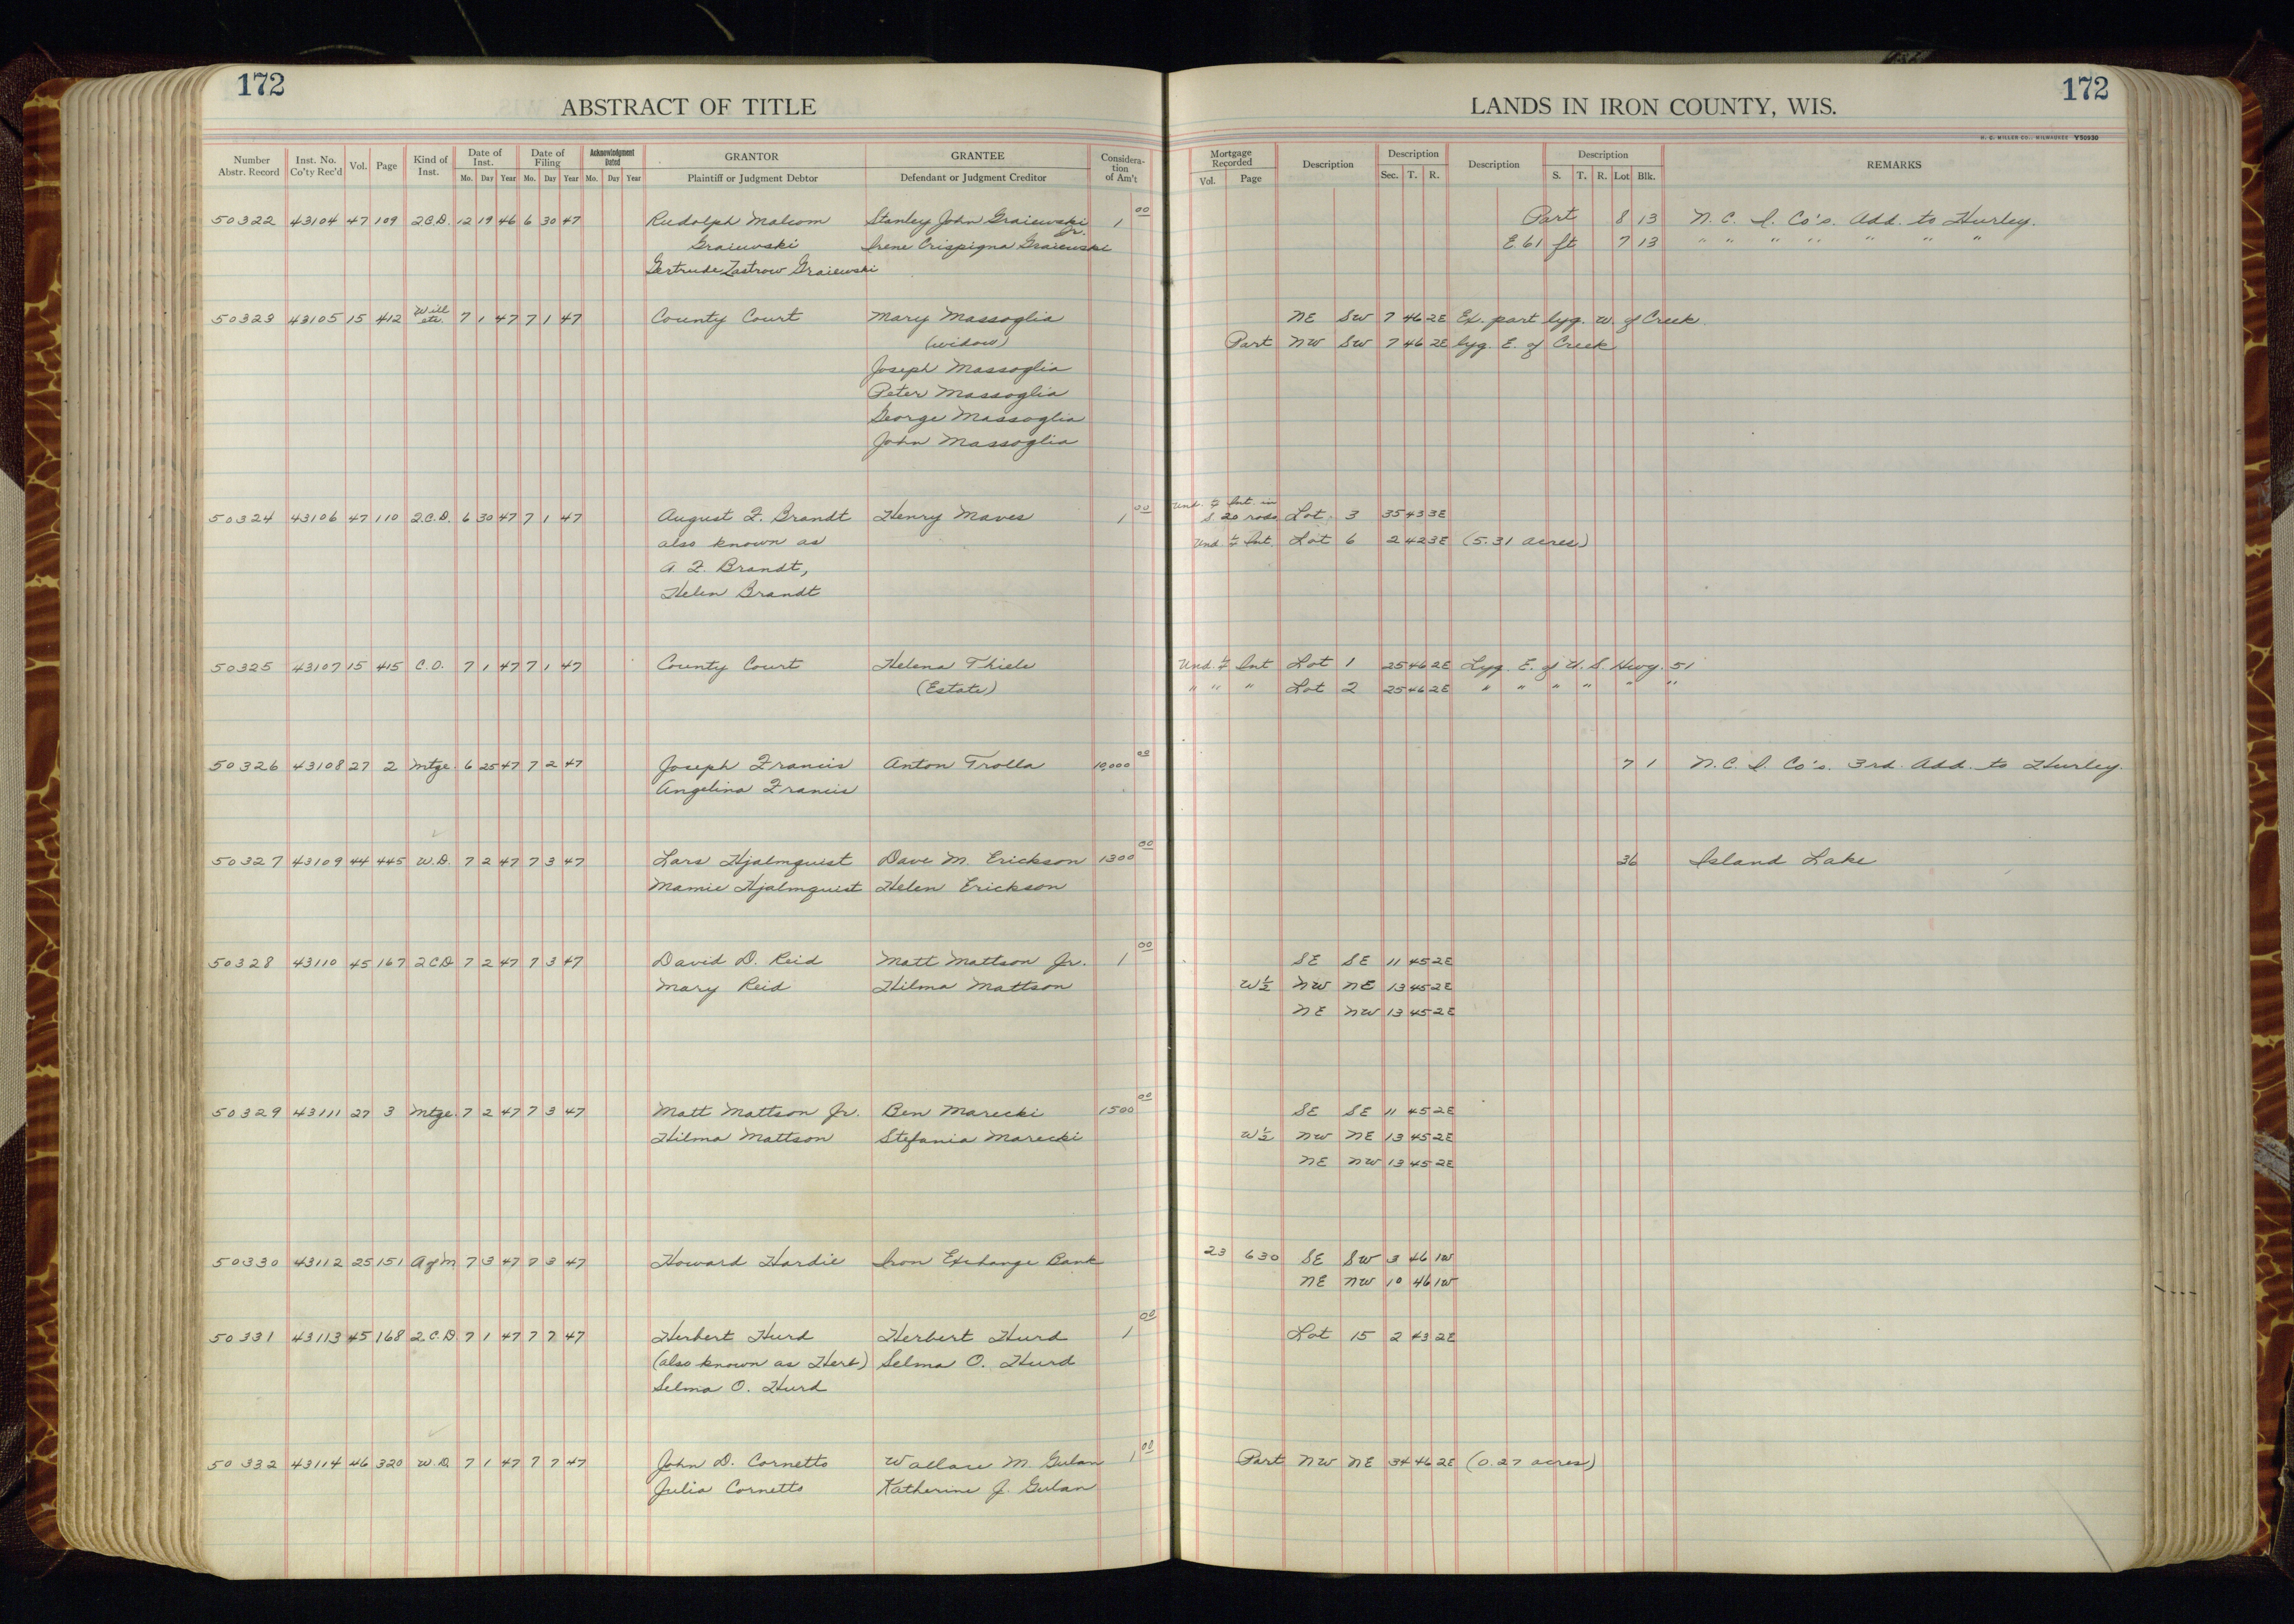 172
172
ABSTRACT OF TITLE
LANDS IN IRON COUNTY, WIS.
H. C. MILLER CO., MILWAUKEE V50930
Number Abstr. Record Inst. No. Co'ty Rec'd Vol. Page Kind of Inst. Date of Inst. Mo. Day Year Date of Filing Mo. Day Year Acknowledgment Dated Mo. Day Year GRANTOR Plaintiff or Judgment Debtor GRANTEE Defendant or Judgment Creditor Consideration of Am't Mortgage Recorded Vol. Page Description Description Sec. T. R. Description Description S. T. R. Lot Blk. REMARKS
50322 43104 47 109 2.C.D. 12 19 46 6 30 47 Rudolph Malcom Stanley John Graiewski Jr. 1 00 Part 8 13 N. C. I. Co's. Add. to Hurley.
Graiewski Irene Crispigna Graiewski E. 61 ft 7 13 " " " " " " "
Gertrude Zastrow Graiewski
50323 43105 15 412 Will etc. 7 1 47 7 1 47 County Court Mary Massoglia NE SW 7 46 2E Ex. part lyg. W. of Creek.
(widow) Part NW SW 7 46 2E lyg. E. of Creek
Joseph Massoglia
Peter Massoglia
George Massoglia
John Massoglia
50324 43106 47 110 2.C.D. 6 30 47 7 1 47 August F. Brandt Henry Maves 1 00 Und. ¼ Int. in S. 20 rods Lot 3 35 43 3E
also known as Und ¼ Int. Lot 6 2 42 3E (5.31 acres)
A. F. Brandt,
Helen Brandt
50325 43107 15 415 C.O. 7 1 47 7 1 47 County Court Helena Thiele Und. ¼ Int Lot 1 25 46 2E Lyg. E. of U. S. Hwy. 51
(Estate) " " " Lot 2 25 46 2E " " " " " "
50326 43108 27 2 Mtge. 6 25 47 7 2 47 Joseph Francis Anton Trolla 10,000 00 7 1 N. C. I. Co's. 3rd. Add. to Hurley.
Angelina Francis
50327 43109 44 445 W.D. 7 2 47 7 3 47 Lars Hjalmquist Dave M. Erickson 1300 00 36 Island Lake
Mamie Hjalmquist Helen Erickson
50328 43110 45 167 2 C D 7 2 47 7 3 47 David D. Reid Matt Mattson Jr. 1 00 SE SE 11 45 2E
Mary Reid Hilma Mattson W½ NW NE 13 45 2E
NE NW 13 45 2E
50329 43111 27 3 Mtge. 7 2 47 7 3 47 Matt Mattson Jr. Ben Marecki 1500 00 SE SE 11 45 2E
Hilma Mattson Stefania Marecki W½ NW NE 13 45 2E
NE NW 13 45 2E
50330 43112 25 151 A of M 7 3 47 7 3 47 Howard Hardie Iron Exchange Bank 23 630 SE SW 3 46 1W
NE NW 10 46 1W
50331 43113 45 168 2.C.D. 7 1 47 7 7 47 Herbert Hurd Herbert Hurd 1 00 Lot 15 2 43 2E
(also known as Herb) Selma O. Hurd
Selma O. Hurd
50332 43114 46 320 W.D. 7 1 47 7 7 47 John D. Cornetto Wallace M. Gulan 1 00 Part NW NE 34 46 2E (0.27 acres)
Julia Cornetto Katherine J. Gulan